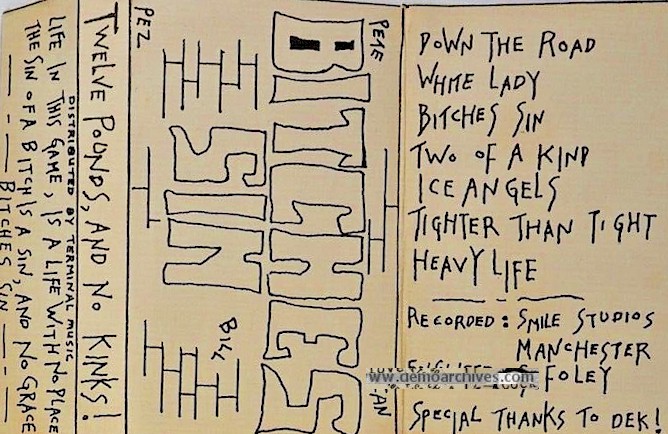 DOWN THE ROAD
WHITE LADY
BITCHES SIN
TWO OF A KIND
ICE ANGELS
TIGHTER THAN TIGHT
HEAVY LIFE
RECORDED: SMILE STUDIOS
MANCHESTER
FOLEY
SPECIAL THANKS TO DEK!
www.demoarchives.com
PETE
BITCHES
SIN
BILL
PEZ
TWELVE POUNDS, AND NO KINKS!
DISTRIBUTED BY TERMINAL MUSIC
LIFE IN THIS GAME, IS A LIFE WITH NO PLACE
THE SIN OF A BITCH IS A SIN, AND NO GRACE
BITCHES SIN